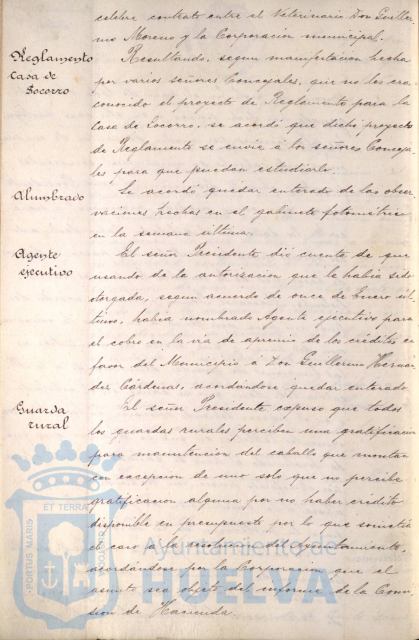 celebre contrato entre el Veterinario Don Guiller-
mo Moreno y la Corporación municipal.
Reglamento
Casa de
Socorro
Resultando, segun manifestacion hecha
por varios señores Concejales, que no les era
conocido el proyecto de Reglamento para la
Casa de Socorro, se acordó que dicho proyecto
de Reglamento se envie á los señores Conceja-
les para que puedan estudiarlo.
Alumbrado
Se acordó quedar enterado de las obser-
vaciones hechas en el gabinete fotométrico
en la semana última.
Agente
ejecutivo
El señor Presidente dió cuenta de que
usando de la autorizacion que le habia sido
otorgada, segun acuerdo de once de Enero úl-
timo, habia nombrado Agente ejecutivo para
el cobro en la via de apremio de los créditos á
favor del Municipio á Don Guillermo Hernan-
dez Cárdenas, acordándose quedar enterado.
Guarda
rural
El señor Presidente expuso que todos
los guardas rurales perciben una gratificacion
para manutencion del caballo que montan
con excepcion de uno solo que no percibe
gratificacion alguna por no haber crédito
disponible en presupuesto por lo que sometia
el caso á la resolucion del Ayuntamiento,
acordándose por la Corporacion que el
asunto sea objeto del informe de la Comi-
sion de Hacienda.
PORTUS MARIS
ET TERRAE
Ayuntamiento de
HUELVA